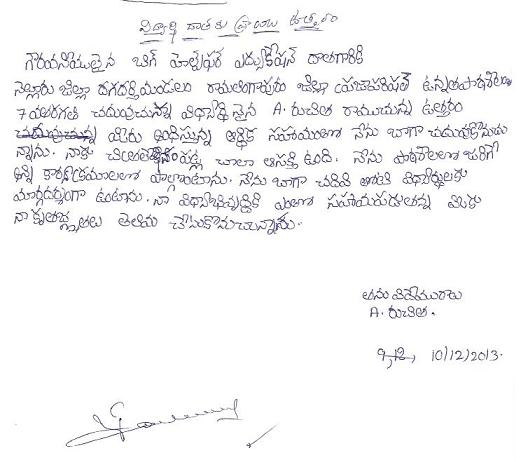 విద్యార్థి దాతకు వ్రాయు ఉత్తరం
గౌరవనీయులైన బిగ్ హెల్ప్‌ఫర్ ఎడ్యుకేషన్ దాతగారికి
నెల్లూరు జిల్లా దగదర్తి మండలం రామలింగాపురం జిల్లా పరిషత్ ఉన్నతపాఠశాలలో
7 వతరగతి చదువుచున్న విధ్యార్థి నైన A. రుచిత రాయుచున్న ఉత్తరం
చదువుచున్న మీరు అందిస్తున్న ఆర్థిక సహాయంతో నేను బాగా చదువుకొనుచు
న్నాను. నాకు చిత్రలేఖనం పట్ల చాలా ఆసక్తి ఉంది. నేను పాఠశాలలో జరిగే
అన్ని కార్యక్రమాలలో పాల్గొంటాను. నేను బాగా చదివి తోటి విధ్యార్థులకు
మార్గదర్శంగా ఉంటాను. నా విధ్యాభివృద్ధికి ఎంతో సహాయపడుతున్న మీకు
నా కృతజ్ఞతలు తెలియ చేసుకొనుచున్నాను.
ఇట్లు విధేయురాలు
A. రుచిత.
9,12, 10/12/2013.